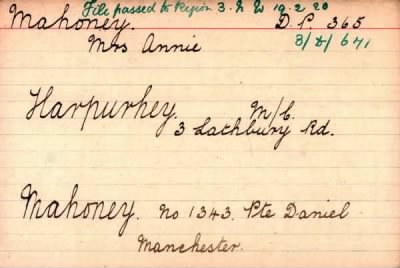 File passed to Region 3. N W 19.2.20
Mahoney. D.P. 365
Mrs Annie 3/D/671
Harpurhey. M/C.
3 Lathbury Rd.
Mahoney. No 1343. Pte Daniel
Manchester.